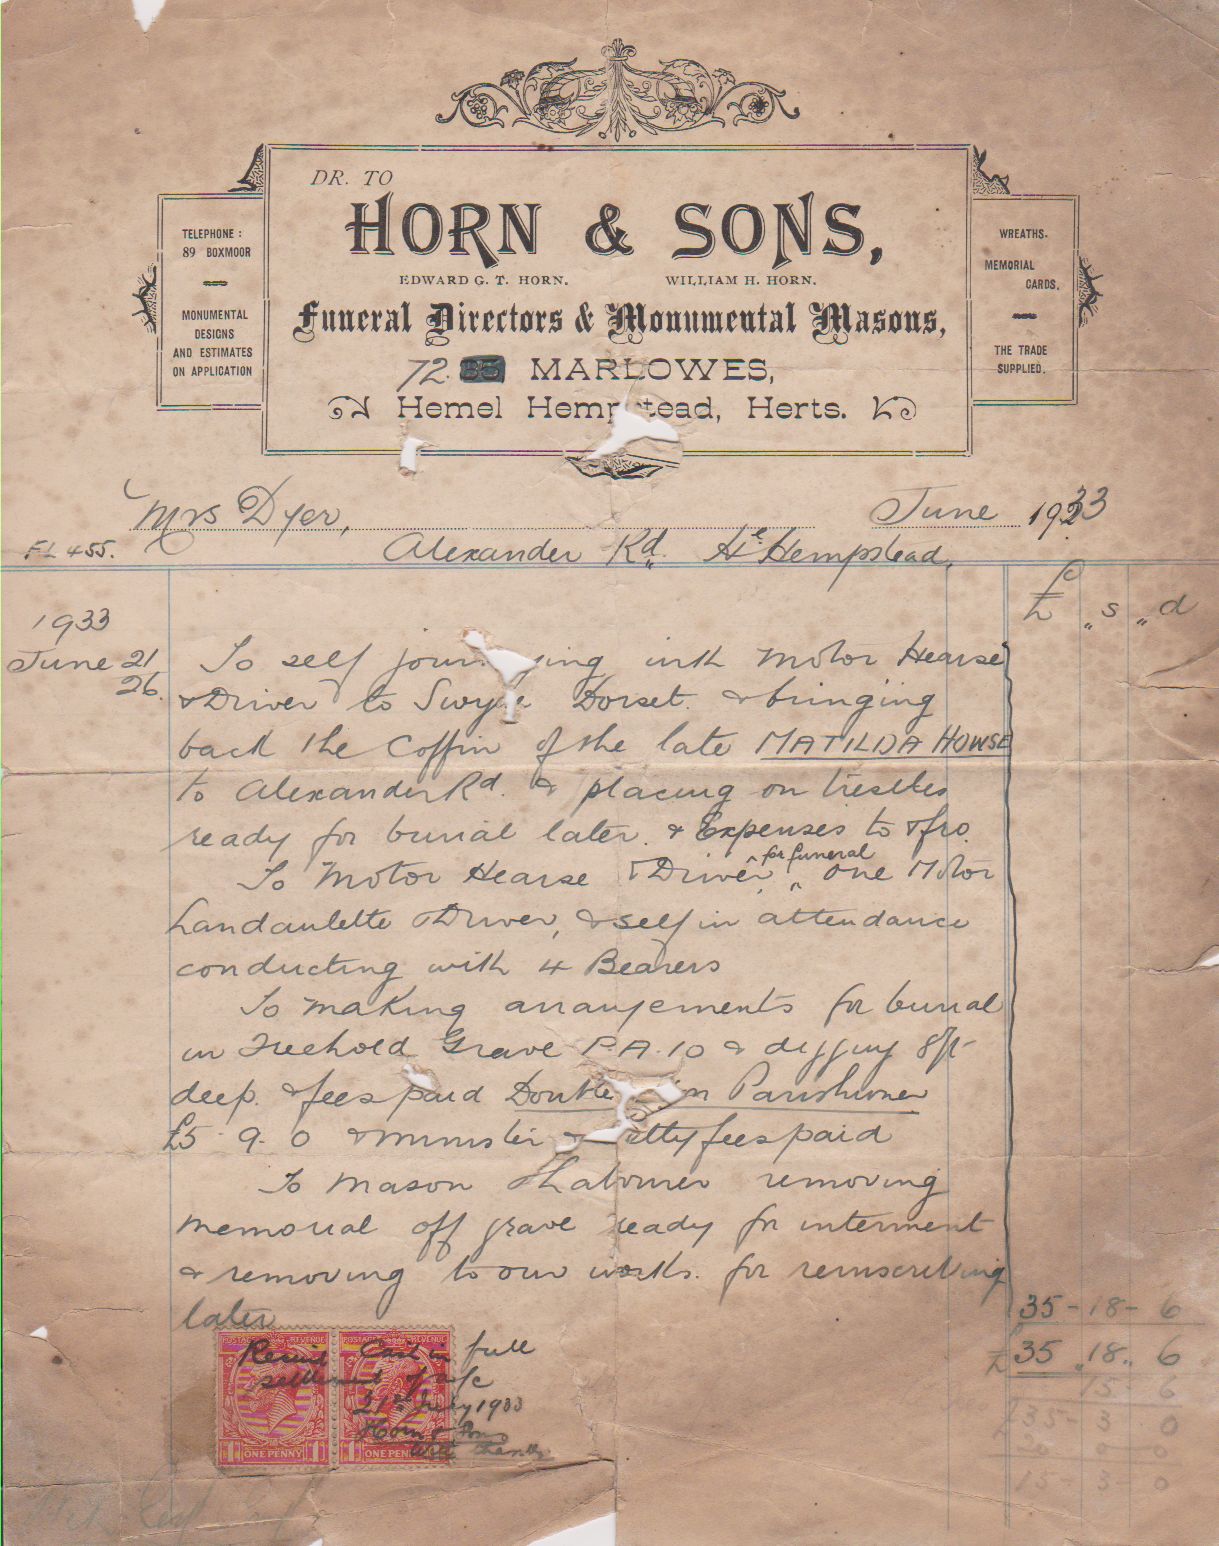 DR. TO
HORN & SONS,
EDWARD G. T. HORN. WILLIAM H. HORN.
Funeral Directors & Monumental Masons,
72. MARLOWES,
Hemel Hempstead, Herts.
TELEPHONE :
89 BOXMOOR
MONUMENTAL
DESIGNS
AND ESTIMATES
ON APPLICATION
WREATHS.
MEMORIAL
CARDS.
THE TRADE
SUPPLIED.
Mrs Dyer, June 1933
FL 455. Alexander Rd. He Hempstead,
£ " s " d
1933
June 21 To self journeying with Motor Hearse
26. & Driver to Swyre Dorset. & bringing
back the Coffin of the late MATILDA HOWSE
to Alexander Rd. & placing on trestles
ready for burial later. & Expenses to & fro.
To Motor Hearse & Driver ^ for funeral " one Motor
Landaulette & Driver, & self in attendance
conducting with 4 Bearers
To making arrangements for burial
in Freehold Grave P.A. 10 & digging 8ft
deep. & fees paid Double Parishioner
£5 - 9 - 0 & minister & Petty fees paid
To Mason & Labourer removing
memorial off grave ready for interment
& removing to our works. for reinscribing
later
35 - 18 - 6
£ 35 " 18 " 6
15 - 6
£ 35 - 3 0
20 0 0
15 - 3 - 0
POSTAGE REVENUE POSTAGE REVENUE
Cash in full
settlement of a/c
21st July 1933
Horn & Sons
with thanks
1D ONE PENNY 1D ONE PENNY